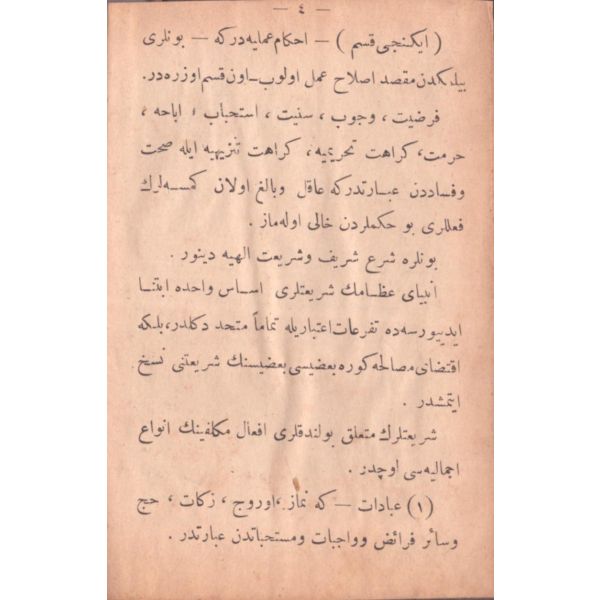 — ٤ —
( ایكنجی قسم ) — احكام عملیه دركه — بونلری
بیلمكدن مقصد اصلاح عمل اولوب اون قسم اوزره در.
فرضیت ، وجوب ، سنیت ، استحباب ، اباحه ،
حرمت، كراهت تحریمیه، كراهت تنزیهیه ایله صحت
وفساددن عبارتدركه عاقل وبالغ اولان كمسه لرك
فعللری بو حكملردن خالی اوله ماز .
بونلره شرع شریف وشریعت الهیه دینور .
انبیای عظامك شریعتلری اساس واحده ابتنا
ایدییورسه ده تفرعات اعتباریله تماماً متحد دكلدر، بلكه
اقتضای مصالحه كوره بعضیسی بعضیسنك شریعتنی نسخ
ایتمشدر .
شریعتلرك متعلق بولندقلری افعال مكلفینك انواع
اجمالیه سی اوچدر .
(١) عبادات — كه نماز ، اوروج ، زكات ، حج
وسائر فرائض وواجبات ومستحباتدن عبارتدر .